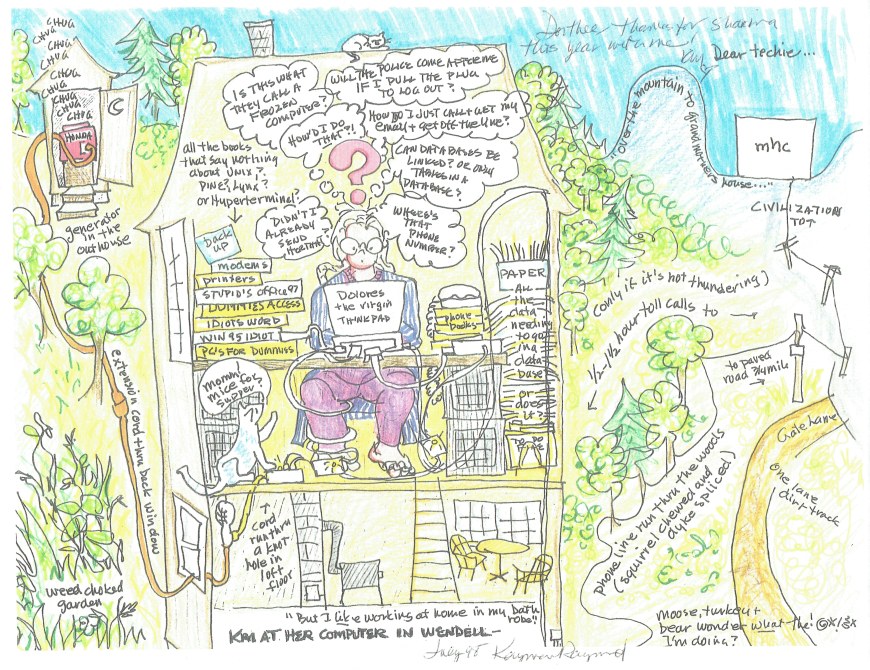 Dorthee thanks for sharing
this year with me!
Kay
Dear Techie...
CHUG
CHUG
CHUG
CHUG
CHUG
CHUG
CHUG
CHUG
CHUG
HONDA
generator
in the
outhouse
IS THIS WHAT
THEY CALL A
FROZEN
COMPUTER?
WILL THE POLICE COME AFTER ME
IF I PULL THE PLUG
TO LOG OUT?
HOW'D I DO
THAT?!
HOW DO I JUST CALL + GET MY
EMAIL + GET OFF THE LINE?
CAN DATABASES BE
LINKED? OR ONLY
TABLES IN A
DATABASE?
?
DIDN'T I
ALREADY
SEND
HER THAT?
WHERE'S
THAT
PHONE
NUMBER?
all the books
that say nothing
about Unix?
PINE? Lynx?
or Hyperterminal?
Back
up
modems
printers
STUPID'S OFFICE 97
DUMMIES ACCESS
IDIOTS WORD
WIN 95 IDIOT
PC'S FOR DUMMIES
Dolores
the virgin
THINKPAD
phone
books
PAPER
ALL
the
data
needing
to go
in a
data-
base
or
does
it?
TO-DO
mommy
mice for
supper
extension cord thru back window
↑
cord
run thru
a knot
hole in
loft
floor
weed choked
garden
"over the mountain to grandmothers house..."
mhc
CIVILIZATION
TO↑
(only if it's not thundering)
1/2-1 1/2 hour toll calls to →
to paved
road 3/4 mile
→
Gate Lane
one lane
dirt track
phone line run thru the woods
(squirrel chewed and
dyke spliced)
moose, turkey +
bear wonder what the! @*/&*
I'm doing?
"But I like working at home in my bath
robe"
KM AT HER COMPUTER IN WENDELL—
July 98